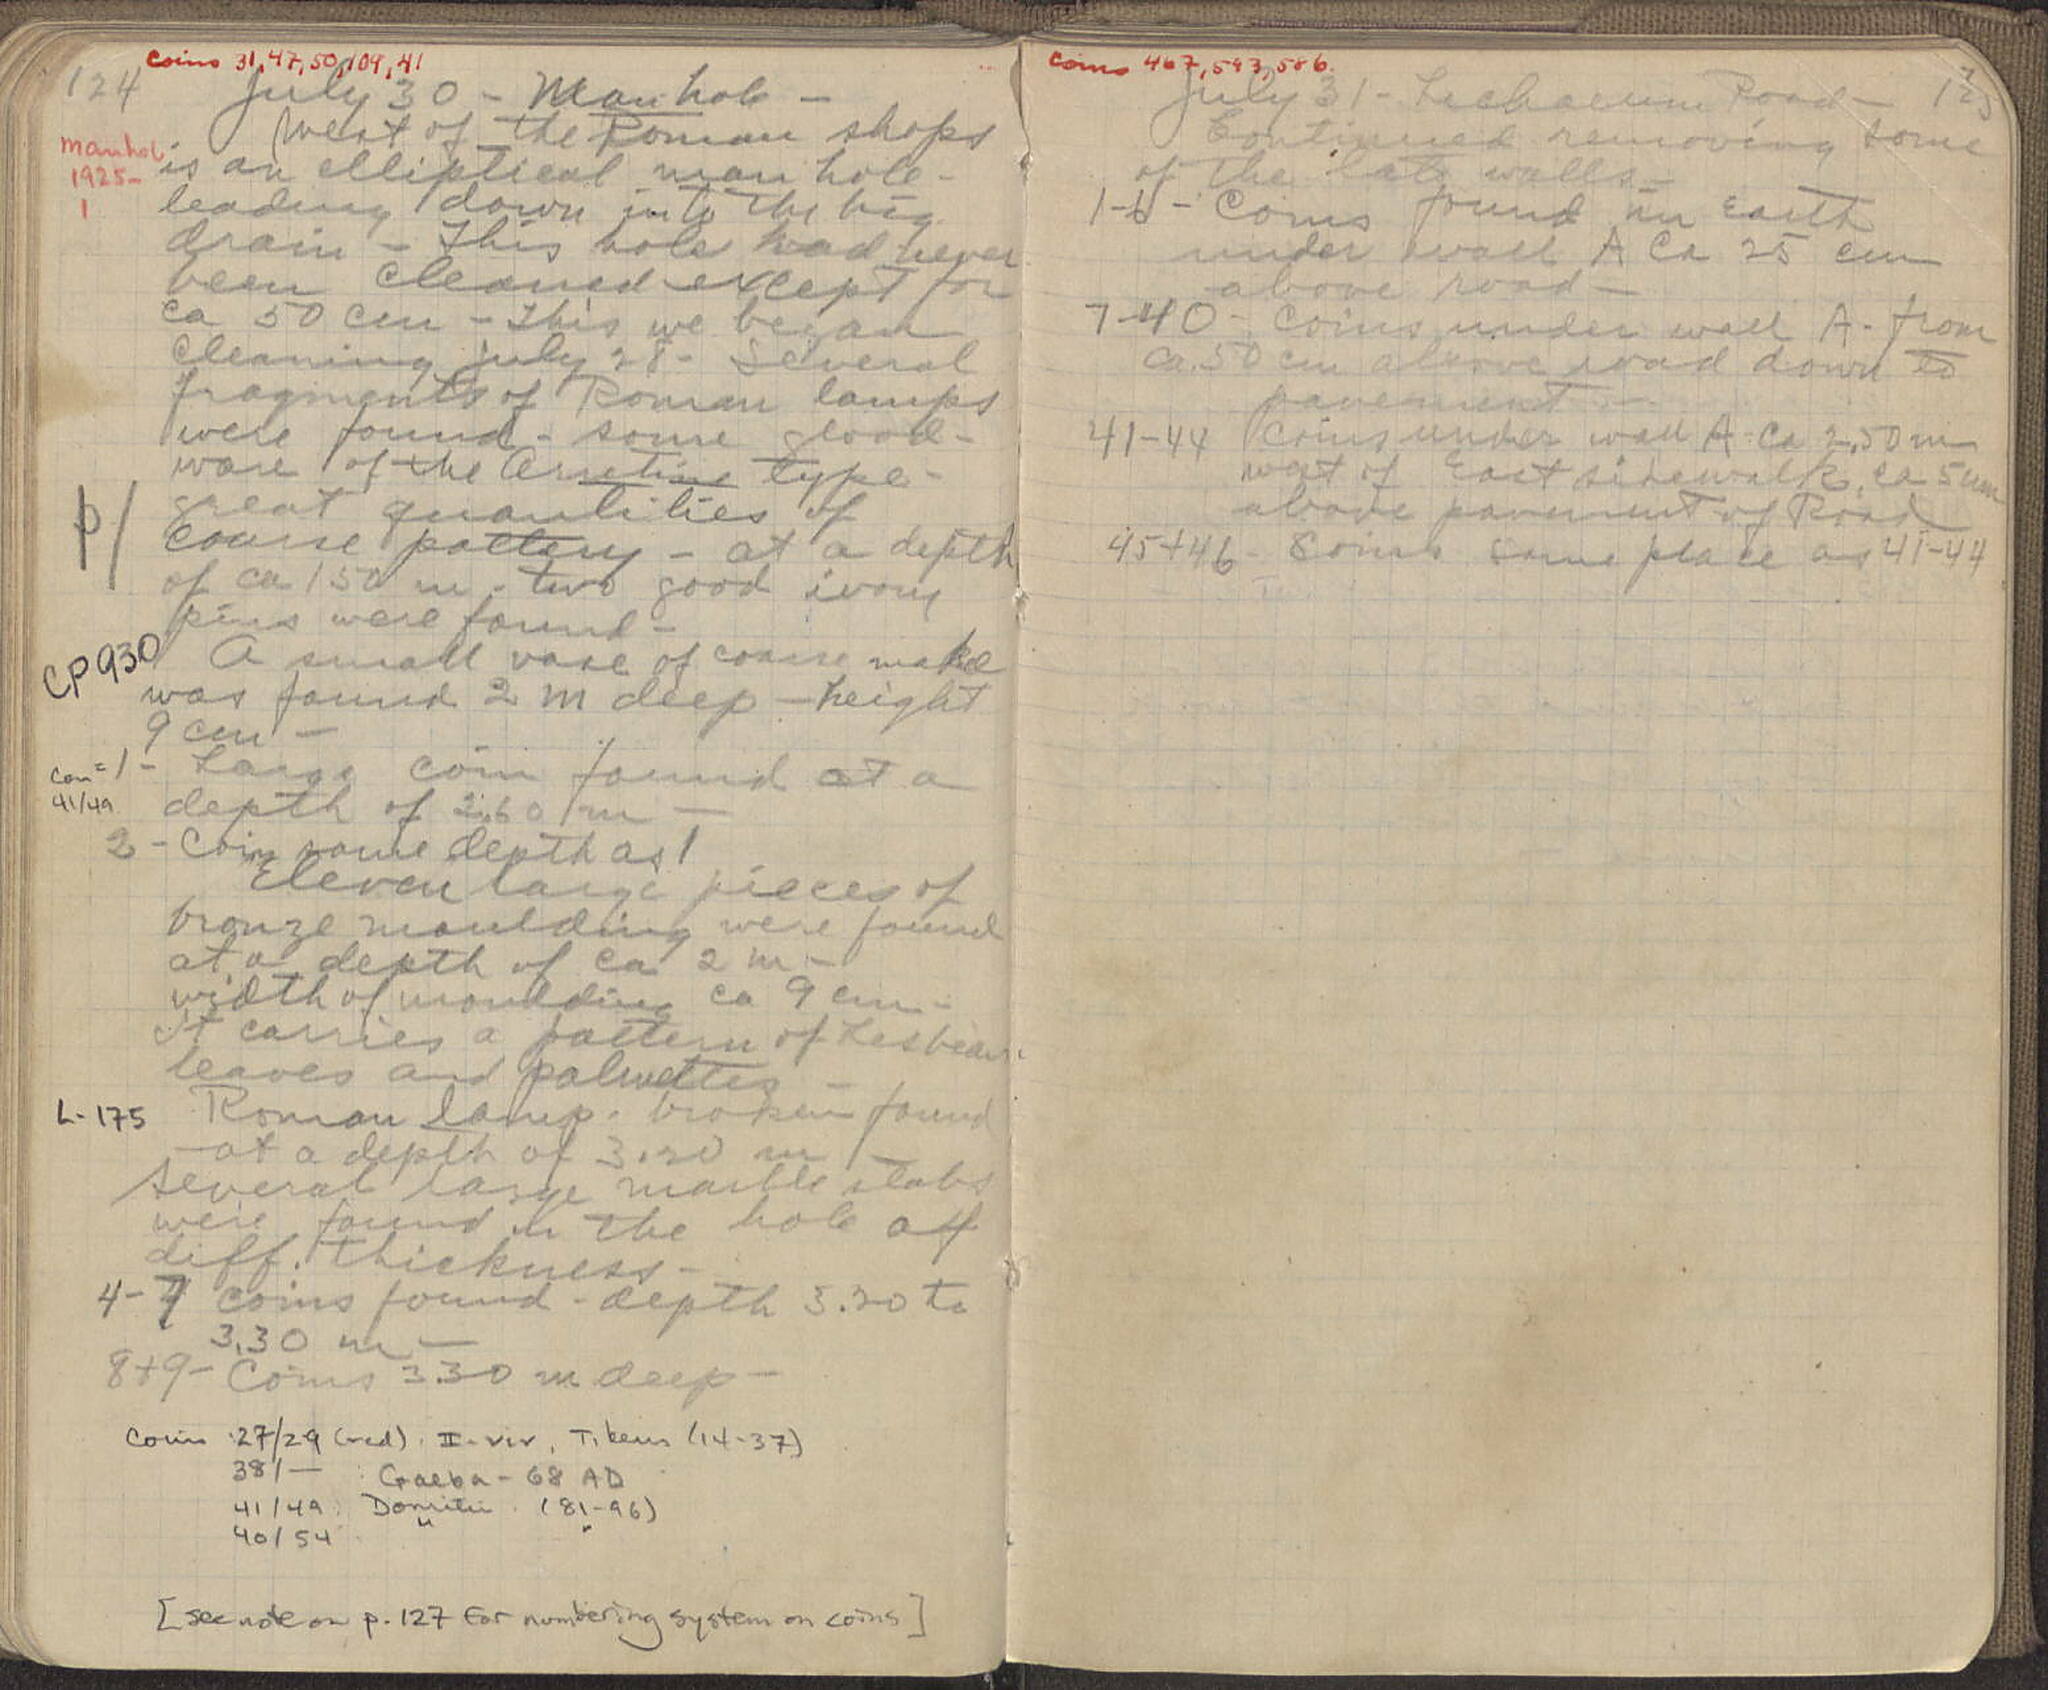 Coins 31, 47, 50, 104, 41
124
July 30 - Manhole -
West of the Roman shops
Manhole
1925-
1
is an elliptical man hole -
leading down into the big
drain - This hole had never
been cleaned except for
ca 50 cm - This we began
cleaning July 28 - Several
fragments of Roman lamps
were found - some good -
ware of the Arretine type -
great quantities of
p/
coarse pottery - at a depth
of ca 1 50 m - two good ivory
pins were found -
CP 930
A small vase of coarse make
was found 2 m deep - height
9 cm -
1 - Large coin found at a
41/49
depth of 2.60 m -
2 - Coin same depth as 1
Eleven large pieces of
bronze moulding were found
at a depth of ca 2 m -
width of moulding ca 9 cm -
It carries a pattern of Lesbian
leaves and palmettes -
L-175
Roman lamp - broken found
at a depth of 3.20 m -
Several large marble slabs
were found in the hole of
diff. thickness -
4-7 coins found - depth 3.20 to
3.30 m -
8+9 - Coins 3.30 m deep -
Coins 27/29 (red). II-vir, Tiberius (14-37)
38/— : Galba - 68 AD
41/49 : Domitian (81-96)
40/54 " "
[see note on p. 127 for numbering system on coins]
Coins 467, 543, 586.
July 31 - Lechaeum Road - 125
Continued removing some
of the late walls -
1-6 - Coins found in Earth
under wall A ca 25 cm
above road -
7-40 - Coins under wall A - from
ca. 50 cm above road down to
pavement -
41-44 Coins under wall A - ca 2.50 m
west of East sidewalk, ca 5 cm
above pavement of Road
45+46 - Coins same place as 41-44